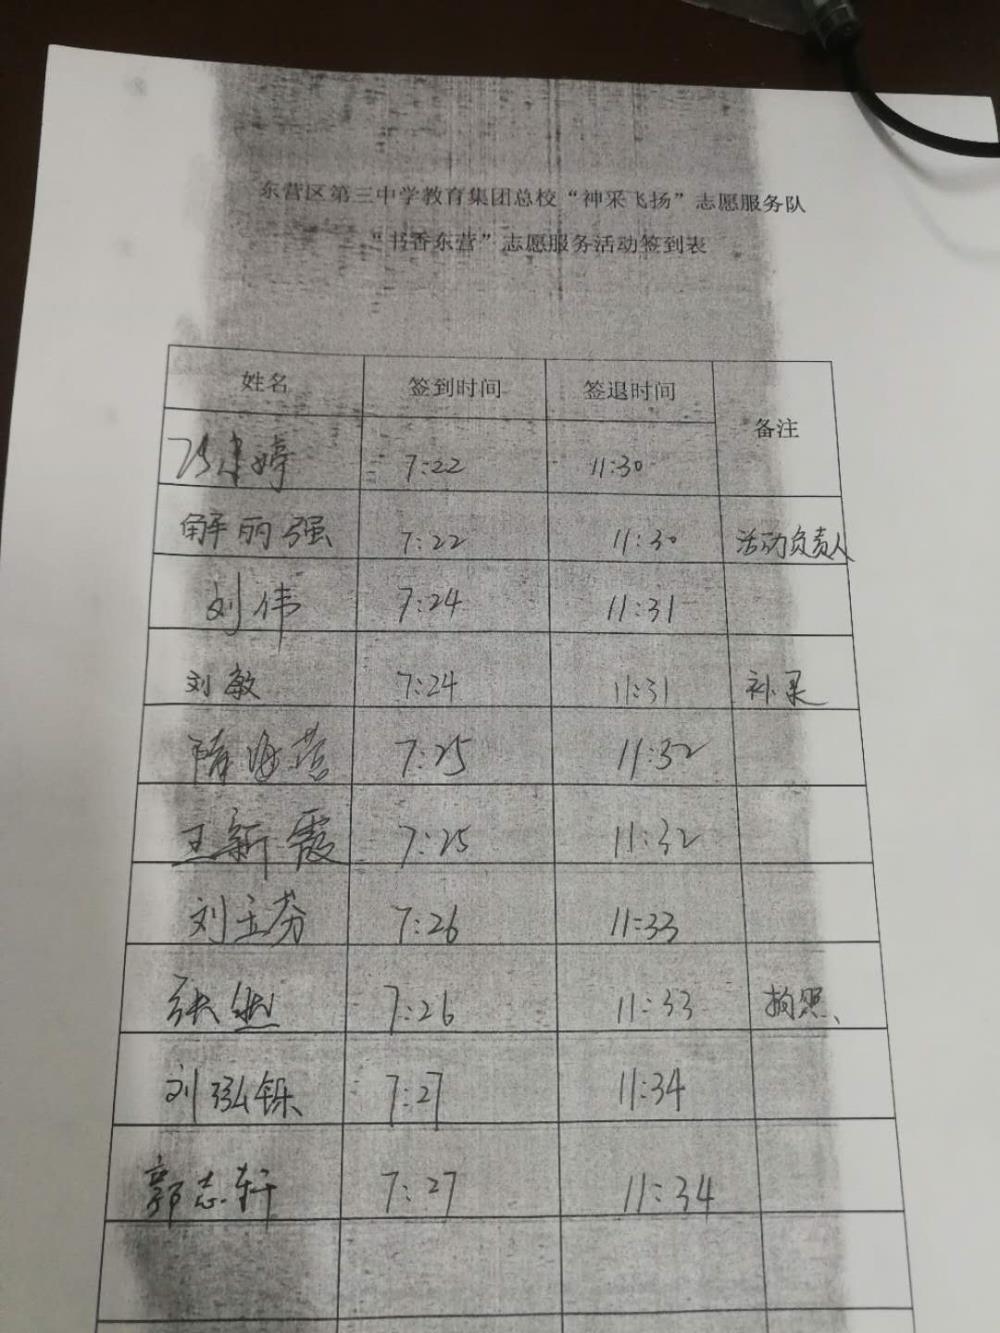 东营区第三中学教育集团总校“神采飞扬”志愿服务队
“书香东营”志愿服务活动签到表
姓名 签到时间 签退时间 备注
婷 7:22 11:30
解丽强 7:22 11:30 活动负责人
刘伟 7:24 11:31
刘敏 7:24 11:31 补录
隋海营 7:25 11:32
王新霞 7:25 11:32
刘玉芬 7:26 11:33
张继 7:26 11:33 拍照
刘泓铄 7:27 11:34
郭志轩 7:27 11:34